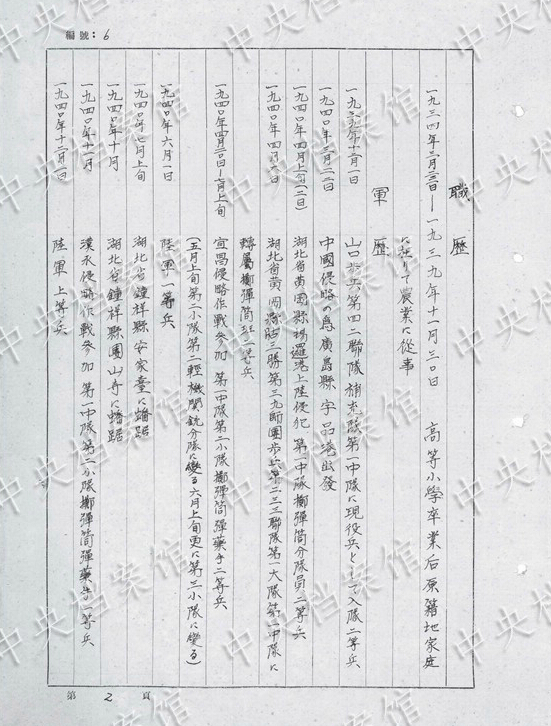 編號：6
職歷
一九三四年三月三一日—一九三九年十一月三〇日 高等小學卒業后原籍地家庭
に於て農業に從事
軍歷
一九三九年十二月一日 山口步兵第四二聯隊補充隊第一中隊に現役兵として入隊二等兵
一九四〇年三月二二日 中國侵略の爲廣島縣宇品港出發
一九四〇年四月上旬(二日) 湖北省黃岡縣楊邏港上陸侵犯 第一中隊擲彈筒分隊員二等兵
一九四〇年四月 湖北省黃岡縣 三勝第三九師團步兵第二三三聯隊第一大隊第一中隊に
轉屬擲彈筒班二等兵
一九四〇年四月二〇日—七月上旬 宜昌侵略作戰參加 第一中隊第二小隊擲彈筒彈藥手二等兵
(五月上旬第二小隊第二輕機關銃分隊に變る六月上旬更に第三小隊に變る)
一九四〇年六月一日 陸軍一等兵
一九四〇年七月上旬 湖北省鍾祥縣安家臺に蟠踞
一九四〇年十月 湖北省鍾祥縣團山寺に蟠踞
一九四〇年十一月 漢水侵略作戰參加 第一中隊第二小隊擲彈筒彈藥手一等兵
一九四〇年十二月一日 陸軍上等兵
第2頁
中央档案馆